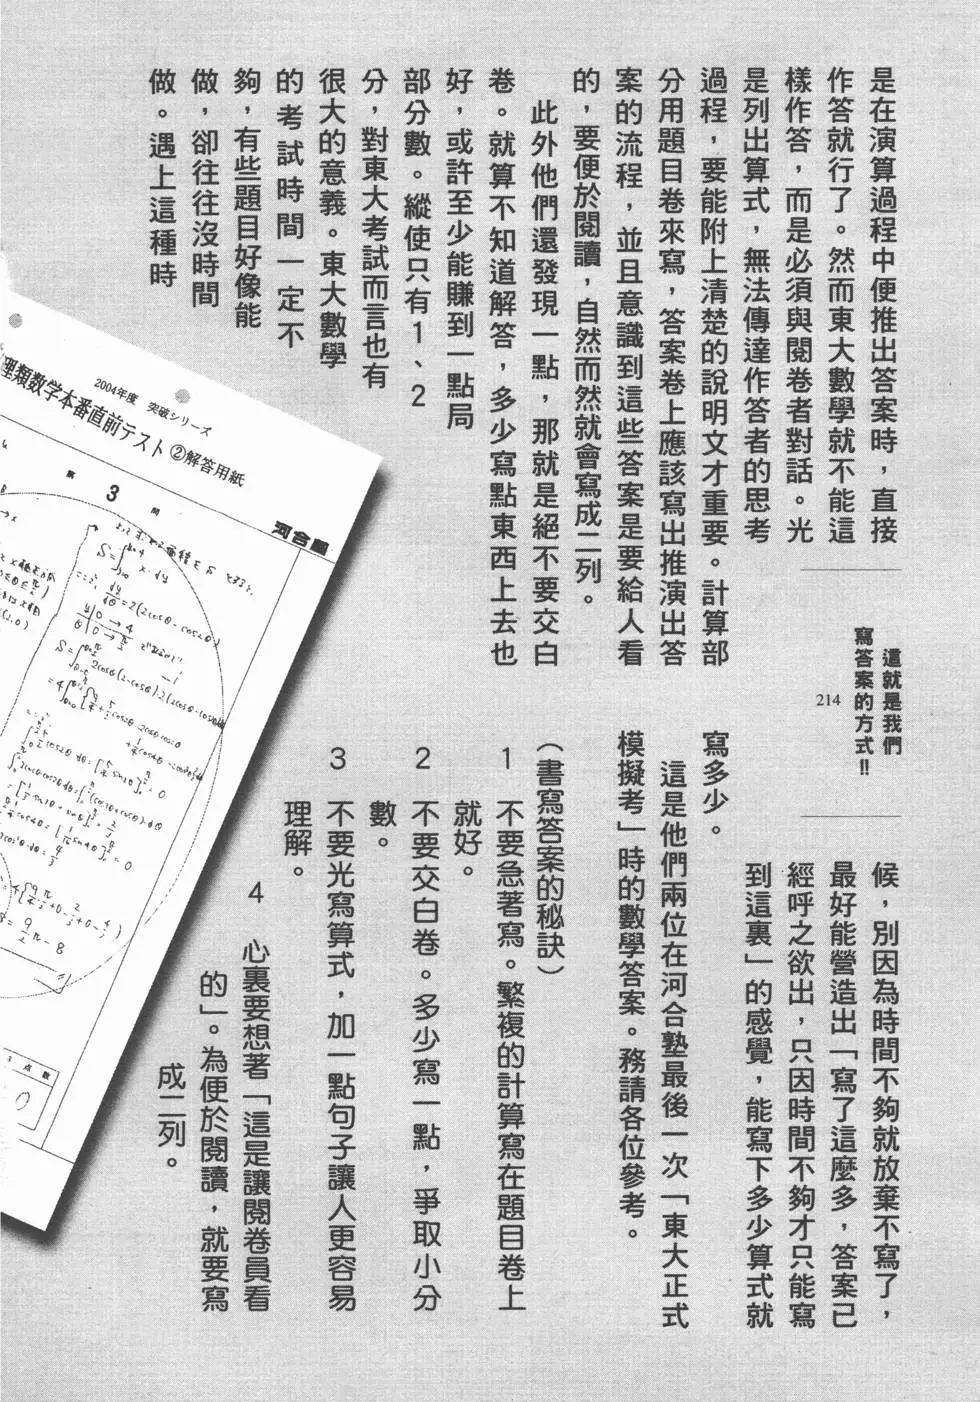 是在演算過程中便推出答案時，直接
作答就行了。然而東大數學就不能這
樣作答，而是必須與閱卷者對話。光
是列出算式，無法傳達作答者的思考
過程，要能附上清楚的說明文才重要。計算部
分用題目卷來寫，答案卷上應該寫出推演出答
案的流程，並且意識到這些答案是要給人看
的，要便於閱讀，自然而然就會寫成二列。
此外他們還發現一點，那就是絕不要交白
卷。就算不知道解答，多少寫點東西上去也
好，或許至少能賺到一點局
部分數。縱使只有1、2
分，對東大考試而言也有
很大的意義。東大數學
的考試時間一定不
夠，有些題目好像能
做，卻往往沒時間
做。遇上這種時
這就是我們
寫答案的方式!!
214
候，別因為時間不夠就放棄不寫了，
最好能營造出「寫了這麼多，答案已
經呼之欲出，只因時間不夠才只能寫
到這裏」的感覺，能寫下多少算式就
寫多少。
這是他們兩位在河合塾最後一次「東大正式
模擬考」時的數學答案。務請各位參考。
（書寫答案的秘訣）
1 不要急著寫。繁複的計算寫在題目卷上
就好。
2 不要交白卷。多少寫一點，爭取小分
數。
3 不要光寫算式，加一點句子讓人更容易
理解。
4 心裏要想著「這是讓閱卷員看
的」。為便於閱讀，就要寫
成二列。
2004年度 突破シリーズ
理類数学本番直前テスト ②解答用紙
第 3 問
河合塾
S=∫ x·dy
dy/dθ=2(2cosθ-cos2θ)
点数